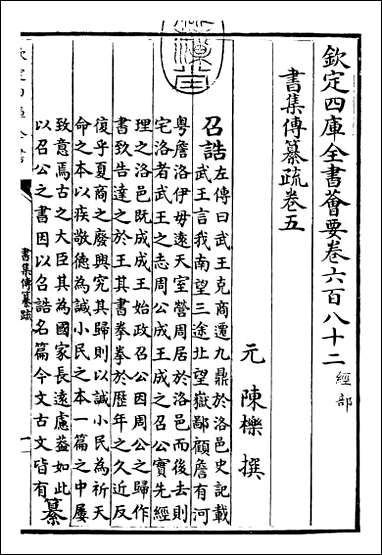 欽定四庫全書薈要卷六百八十二 經部
書集傳纂疏卷五
元 陳櫟 撰
召誥 左傳曰武王克商遷九鼎於洛邑史記載
武王言我南望三途北望嶽鄙顧詹有河
粤詹洛伊毋遠天室營周居於洛邑而後去則
宅洛者武王之志周公成王成之召公實先經
理之洛邑既成成王始政召公因周公之歸作
書致告達之於王其書拳拳於歷年之久近反
復乎夏商之廢興究其歸則以諴小民為祈天
命之本以疾敬德為諴小民之本一篇之中屢
致意焉古之大臣其為國家長遠慮葢如此
以召公之書因以召誥名篇今文古文皆有 纂
書集傳纂疏